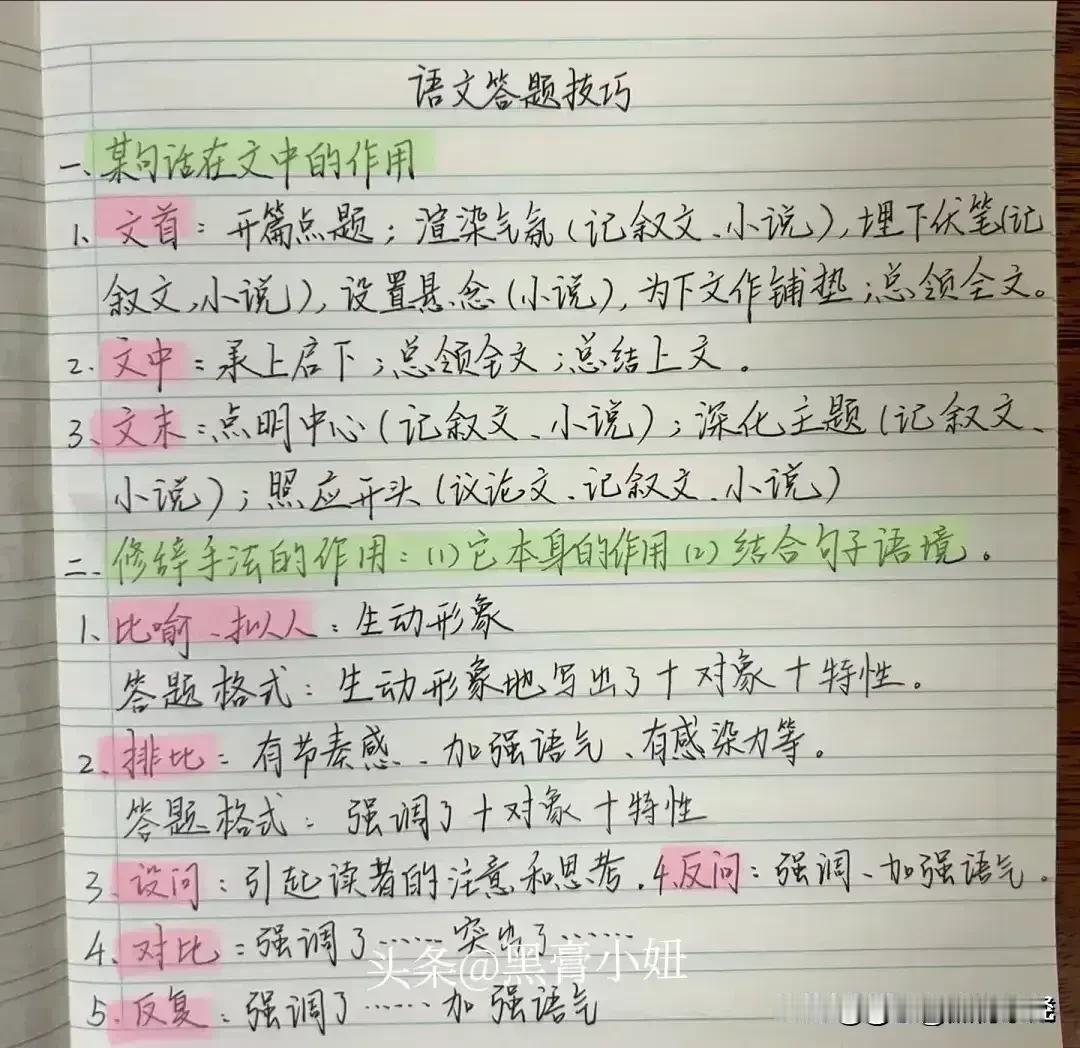 语文答题技巧
一、某句话在文中的作用
1、文首：开篇点题；渲染气氛(记叙文、小说),埋下伏笔(记
叙文,小说),设置悬念(小说),为下文作铺垫;总领全文。
2.文中：承上启下;总领全文;总结上文。
3、文末：点明中心(记叙文、小说);深化主题(记叙文、
小说);照应开头(议论文、记叙文、小说)
二、修辞手法的作用：(1)它本身的作用(2)结合句子语境。
1、比喻、拟人：生动形象
答题格式：生动形象地写出了+对象+特性。
2、排比：有节奏感、加强语气、有感染力等。
答题格式：强调了+对象+特性
3、设问：引起读者的注意和思考.4.反问：强调、加强语气.
4.对比：强调了……突出了……
头条@黑膏小妞
5.反复：强调了……加强语气